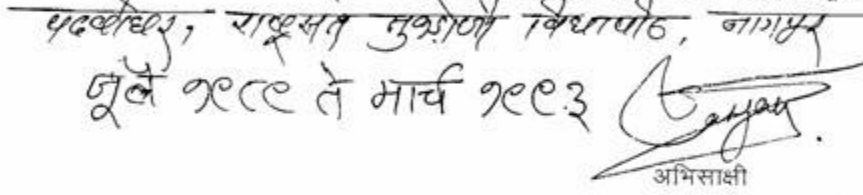 पदव्योत्तर, राष्ट्रसंत तुकडोजी विद्यापीठ, नागपूर
जूलै १९८९ ते मार्च १९९३
अभिसाक्षी